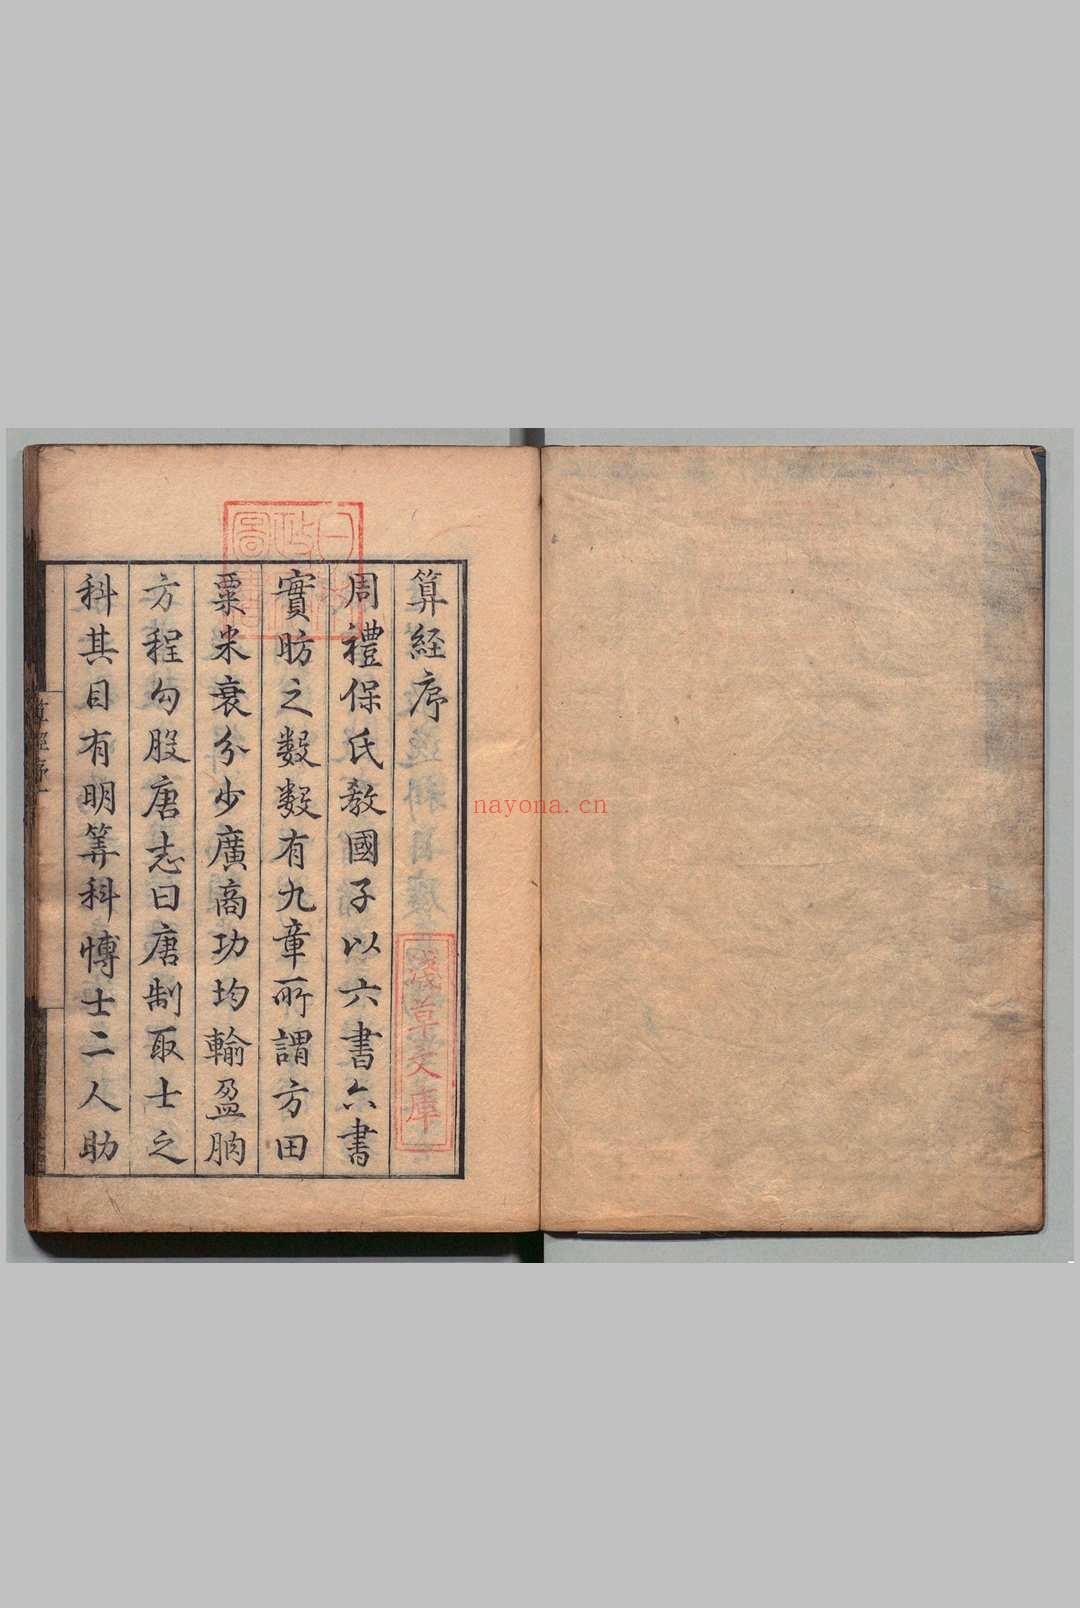 算经序
周禮保氏敎國子以六書六書
實昉之數數有九章所謂方田
粟米衰分少廣商功均輸盈朒
方程勾股唐志曰唐制取士之
科其目有明筭科愽士二人助
算經序
一
日本
政府
圖書
淺草文庫
nayona.cn